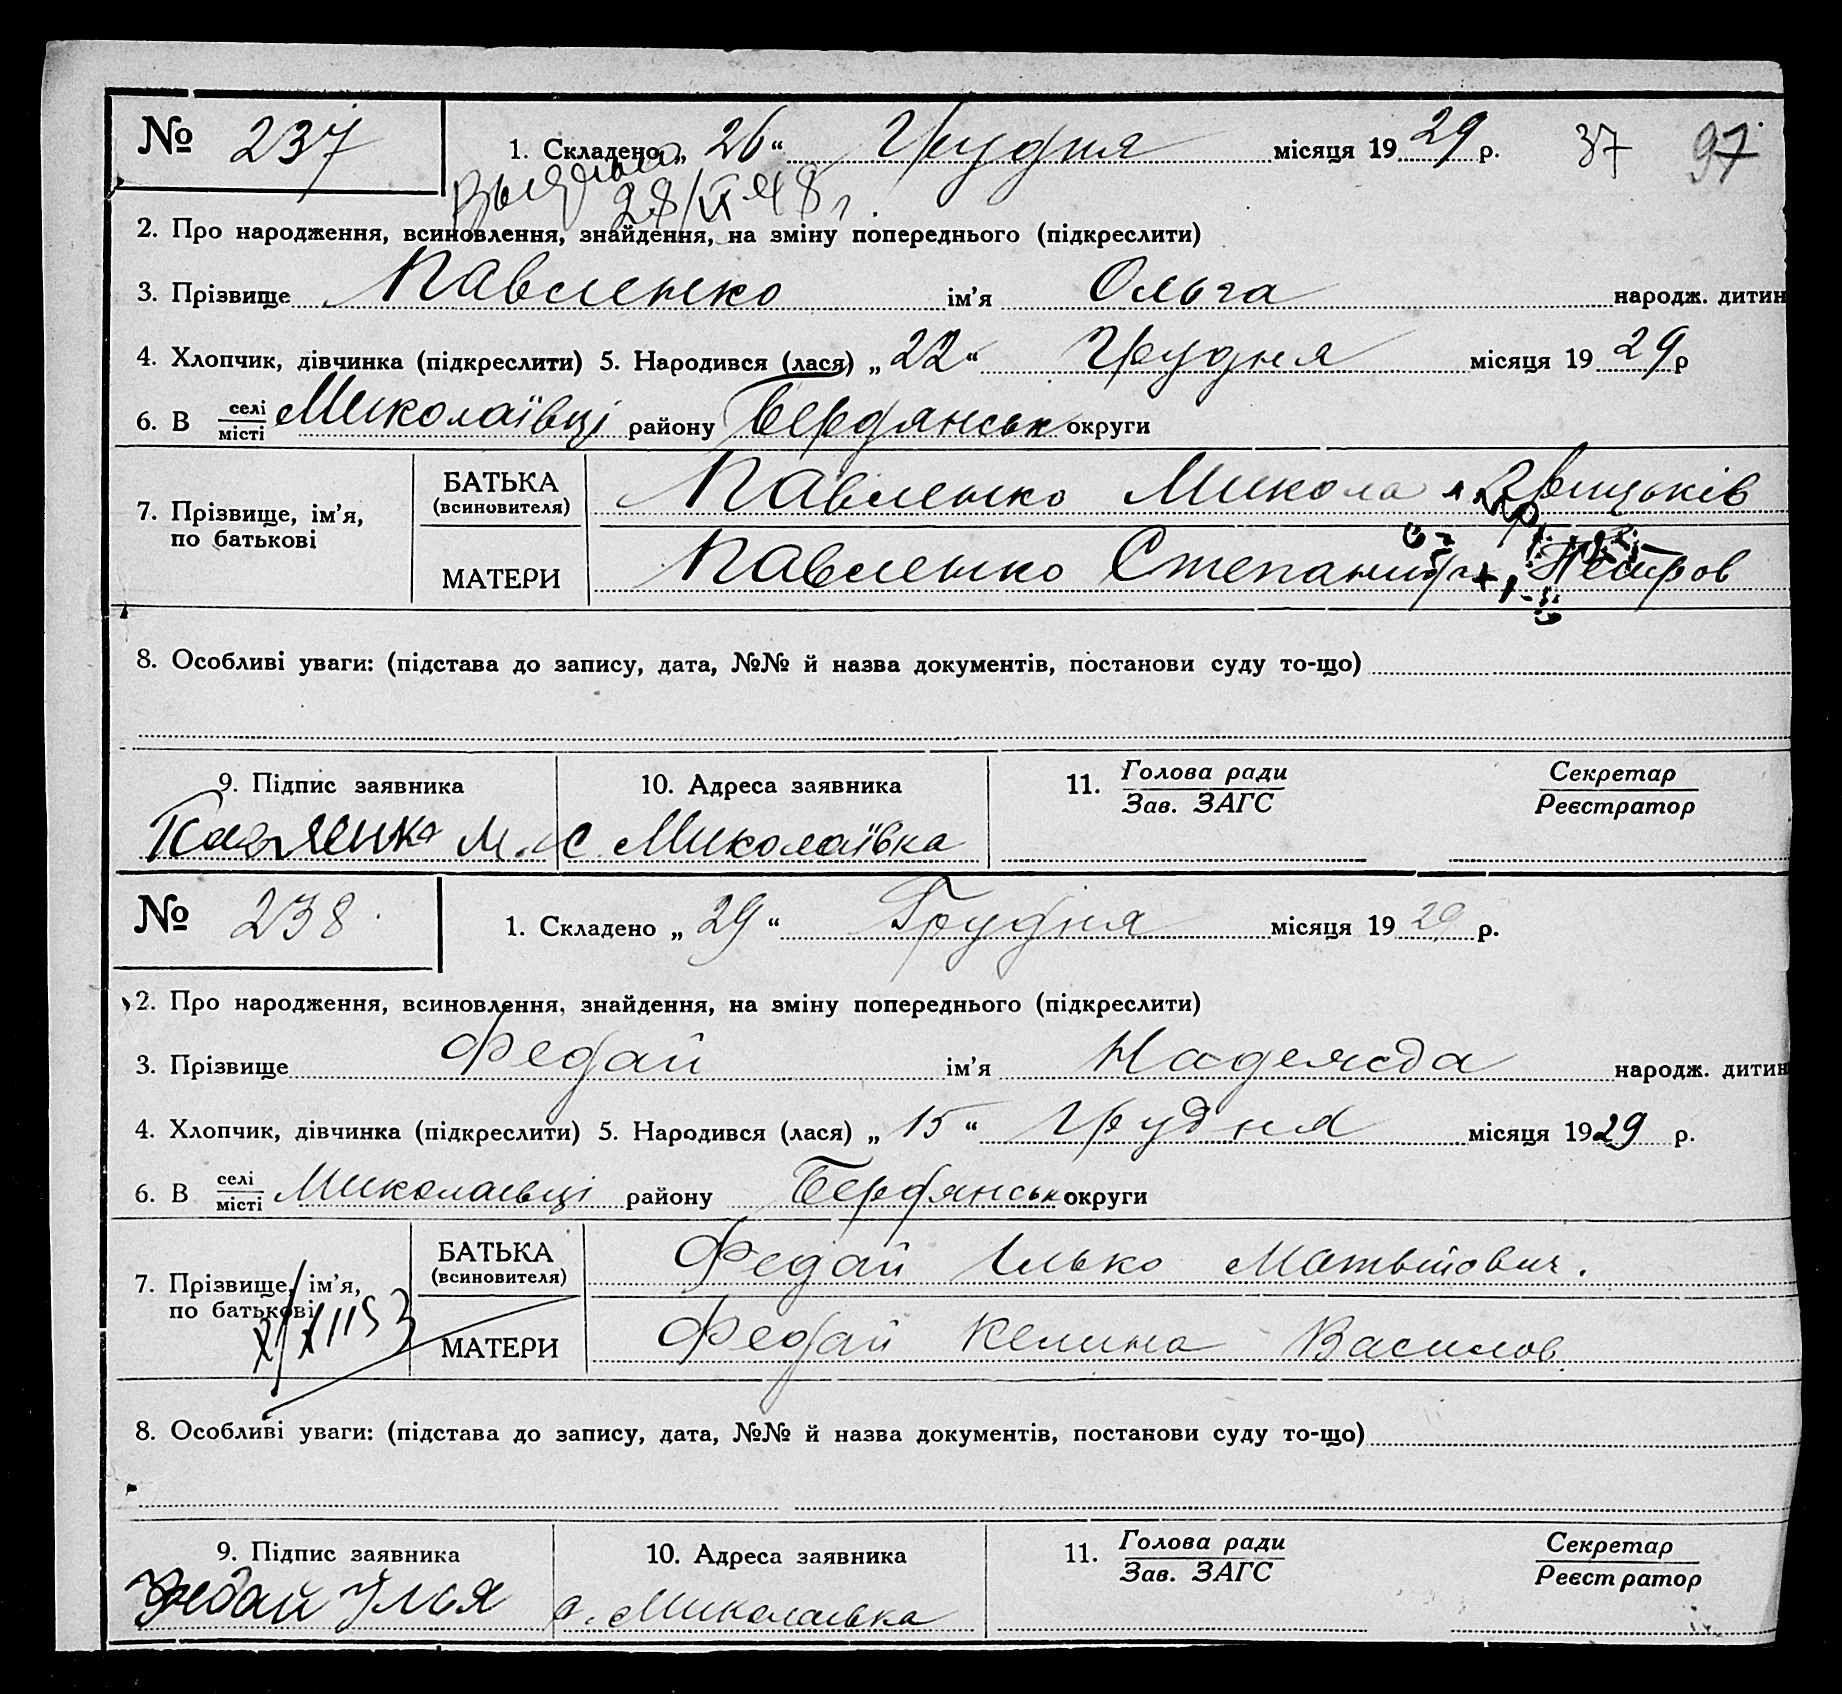 № 237 1. Складено „ 26 “ Грудня місяця 19 29 р. 37 97
28/ІХ 48 г.
2. Про народження, всиновлення, знайдення, на зміну попереднього (підкреслити)
3. Прізвище Павленко ім’я Ольга народж. дитин
4. Хлопчик, дівчинка (підкреслити) 5. Народився (лася) „ 22 “ Грудня місяця 19 29 р
6. В селі/місті Миколаївці району Бердянськ округи
7. Прізвище, ім’я, по батькові
БАТЬКА (всиновителя) Павленко Микола Грицьків
МАТЕРИ Павленко Степанида Петров
8. Особливі уваги: (підстава до запису, дата, №№ й назва документів, постанови суду то-що)
9. Підпис заявника 10. Адреса заявника 11. Голова ради/Зав. ЗАГС Секретар/Реєстратор
Павленко М. с. Миколаївка
№ 238 1. Складено „ 29 “ Грудня місяця 19 29 р.
2. Про народження, всиновлення, знайдення, на зміну попереднього (підкреслити)
3. Прізвище Федай ім’я Надежда народж. дитин
4. Хлопчик, дівчинка (підкреслити) 5. Народився (лася) „ 15 “ Грудня місяця 19 29 р.
6. В селі/місті Миколаевці району Бердянськ округи
7. Прізвище, ім’я, по батькові
БАТЬКА (всиновителя) Федай Ілько Матвійович.
МАТЕРИ Федай Келина Василов.
8. Особливі уваги: (підстава до запису, дата, №№ й назва документів, постанови суду то-що)
9. Підпис заявника 10. Адреса заявника 11. Голова ради/Зав. ЗАГС Секретар/Реєстратор
Федай Илья с. Миколаевка